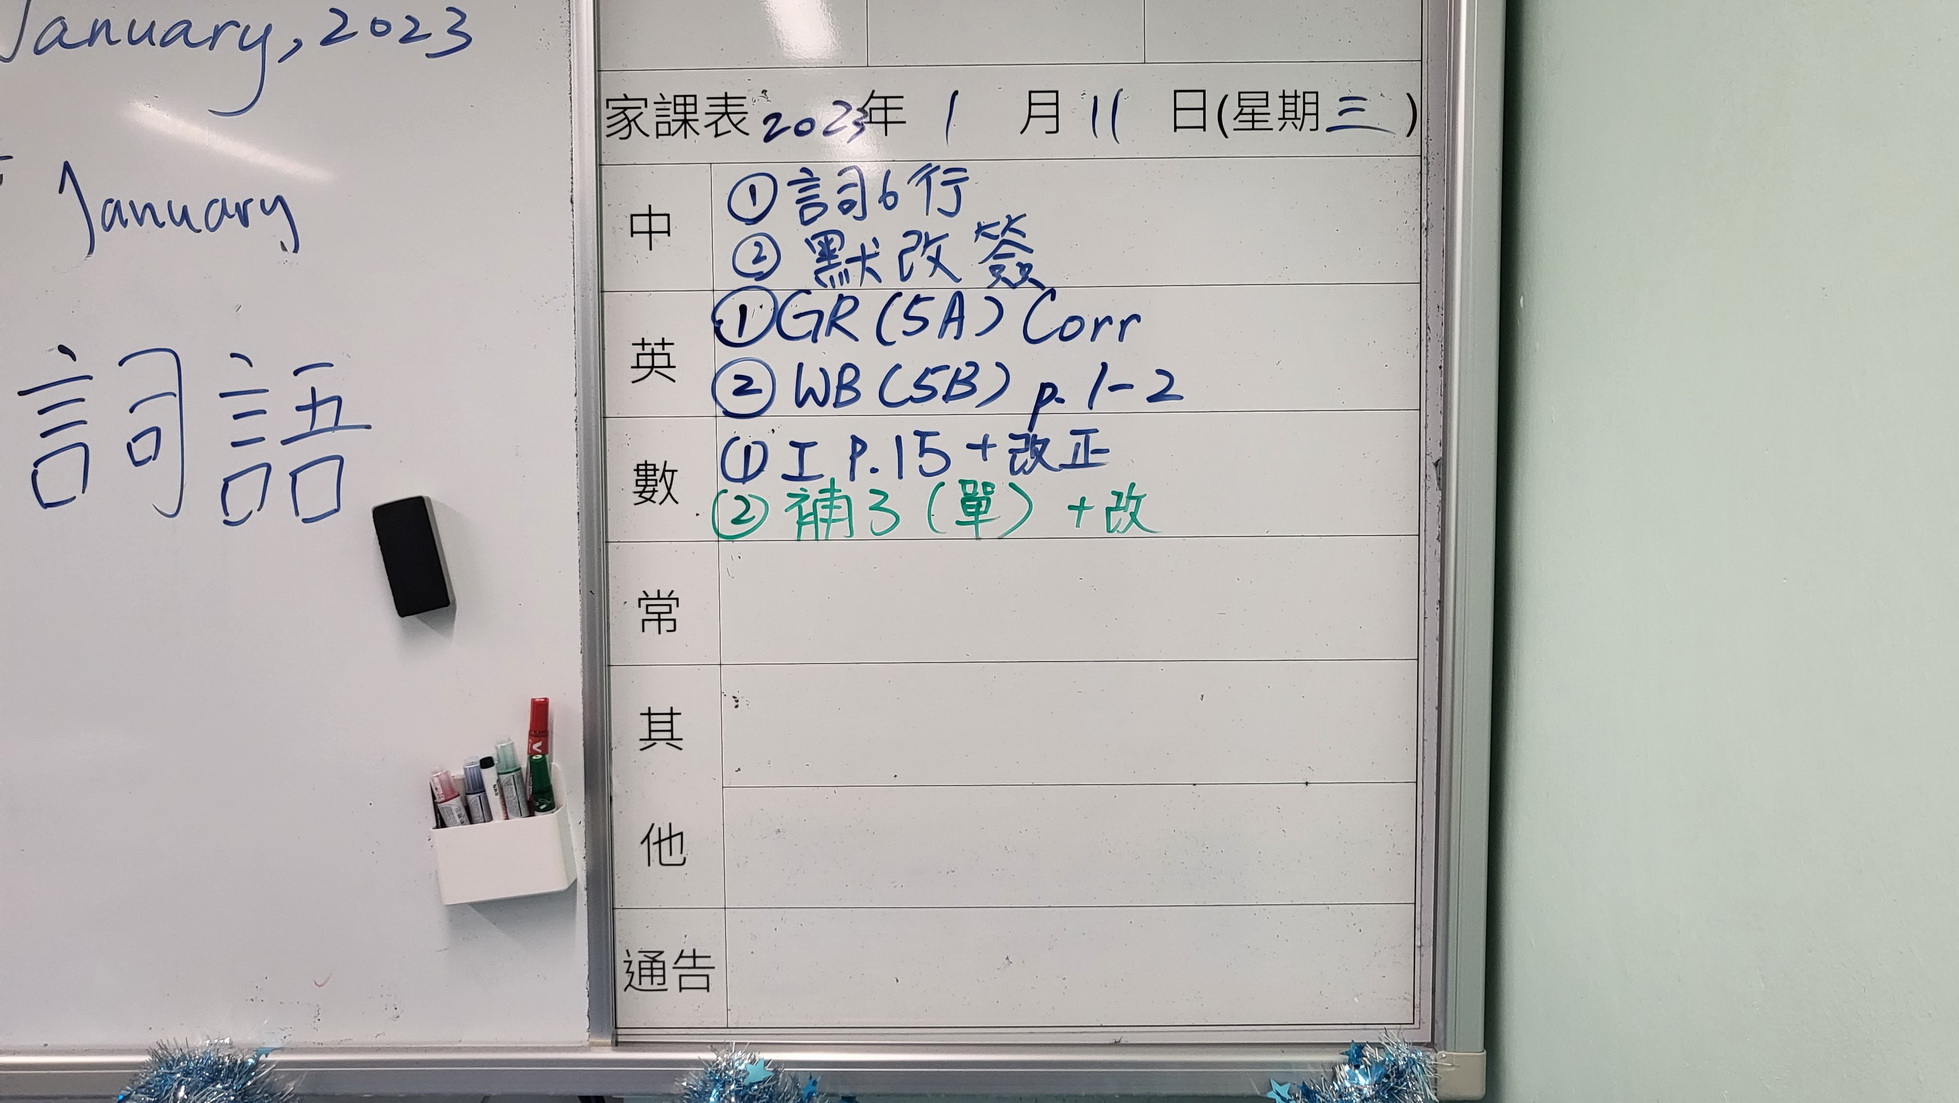 January, 2023
January
詞語
家課表 2023年 1 月 11 日(星期三)
中
① 詞6行
② 默改簽
英
① GR (5A) Corr
② WB (5B) p. 1-2
數
① 工 P.15 + 改正
② 補3 (單) + 改
常
其
他
通告